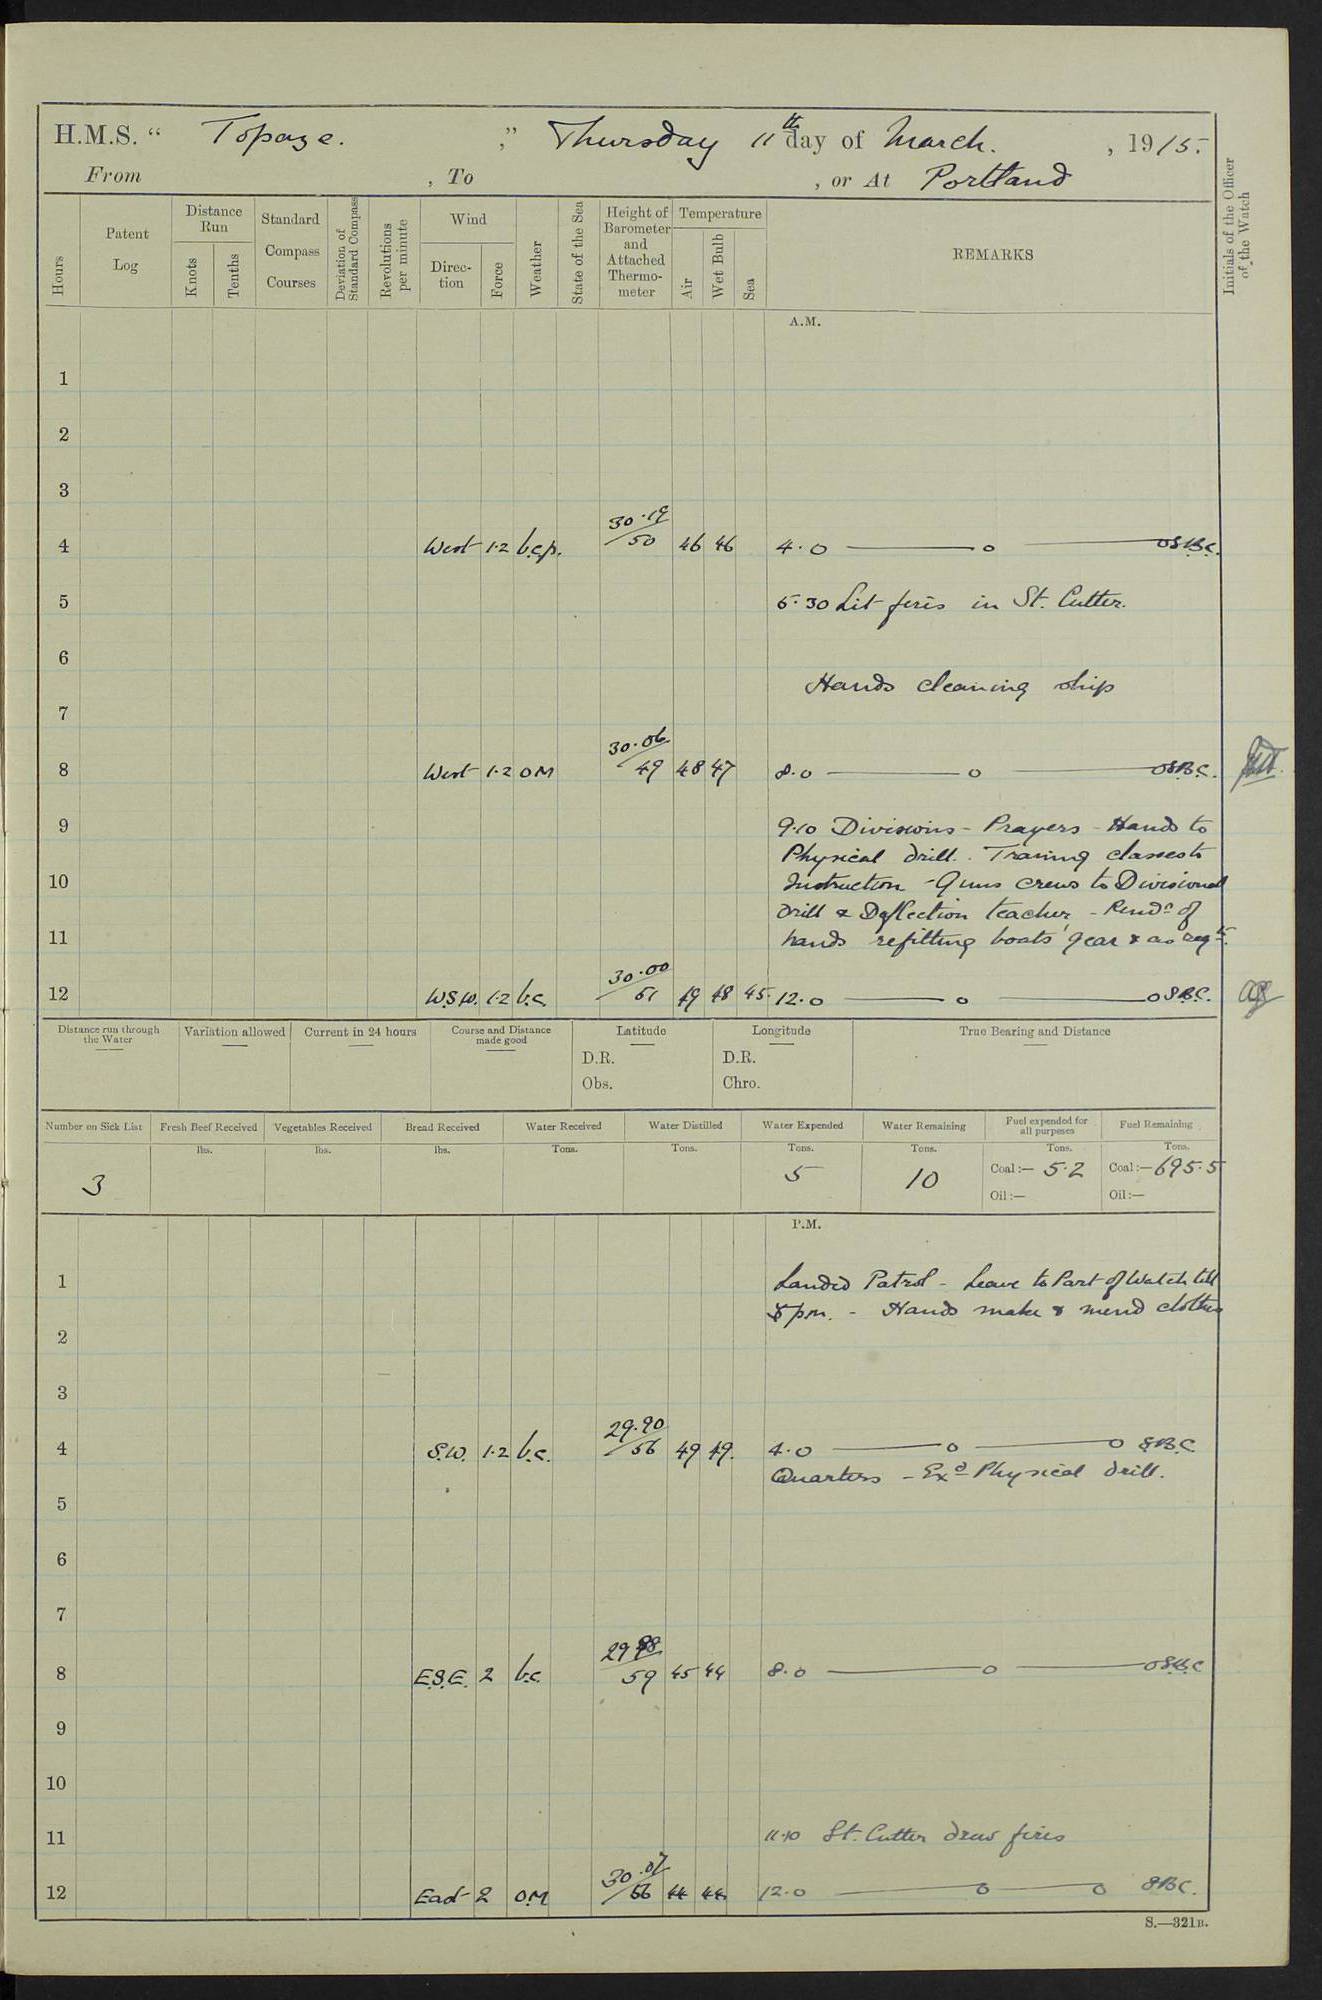 H.M.S. “ Topaze. ,” Thursday 11th day of March. , 1915.
From , To , or At Portland
Hours
Patent Log
Distance Run
Knots
Tenths
Standard Compass Courses
Deviation of Standard Compass
Revolutions per minute
Wind
Direc-tion
Force
Weather
State of the Sea
Height of Barometer and Attached Thermo-meter
Temperature
Air
Wet Bulb
Sea
REMARKS
Initials of the Officer of the Watch
A.M.
1
2
3
30.19
4 West 1.2 b.c.p. 50 46 46 4.0 S.B.C.
5 5.30 Lit fires in St. Cutter.
6
Hands cleaning ship
7
30.06
8 West 1.2 O M 49 48 47 8.0 S.B.C.
9 9.10 Divisions - Prayers - Hands to
Physical drill. Training classes to
10 Instruction - Guns crews to Divisional
drill & Deflection teacher - Remdr of
11 hands refitting boats' gear & as reqte.
30.00
12 W.S.W. 1.2 b.c. 51 49 48 45. 12.0 S.B.C.
Distance run through the Water
Variation allowed
Current in 24 hours
Course and Distance made good
Latitude
D.R.
Obs.
Longitude
D.R.
Chro.
True Bearing and Distance
Number on Sick List
Fresh Beef Received
Vegetables Received
Bread Received
Water Received
Water Distilled
Water Expended
Water Remaining
Fuel expended for all purposes
Fuel Remaining
lbs. lbs. lbs. Tons. Tons. Tons. Tons. Tons. Tons.
3 5 10 Coal:— 5.2 Coal:— 695.5
Oil:— Oil:—
P.M.
1 Landed Patrol - Leave to Part of Watch till
8 pm. - Hands make & mend clothes
2
3
29.90
4 S.W. 1.2 b.c. 56 49 49. 4.0 S.B.C
Quarters - Exd Physical drill.
5
6
7
29.98
8 E.S.E. 2 b.c. 59 45 44 8.0 S.B.C
9
10
11 11.10 St. Cutter draw fires
30.07
12 East 2 O.M 56 44 44 12.0 S.B.C.
S.—321B.